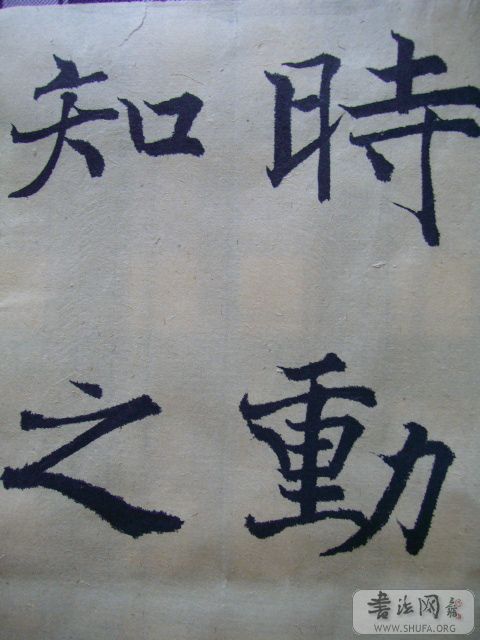 時動
知之
書法网
WWW.SHUFA.ORG